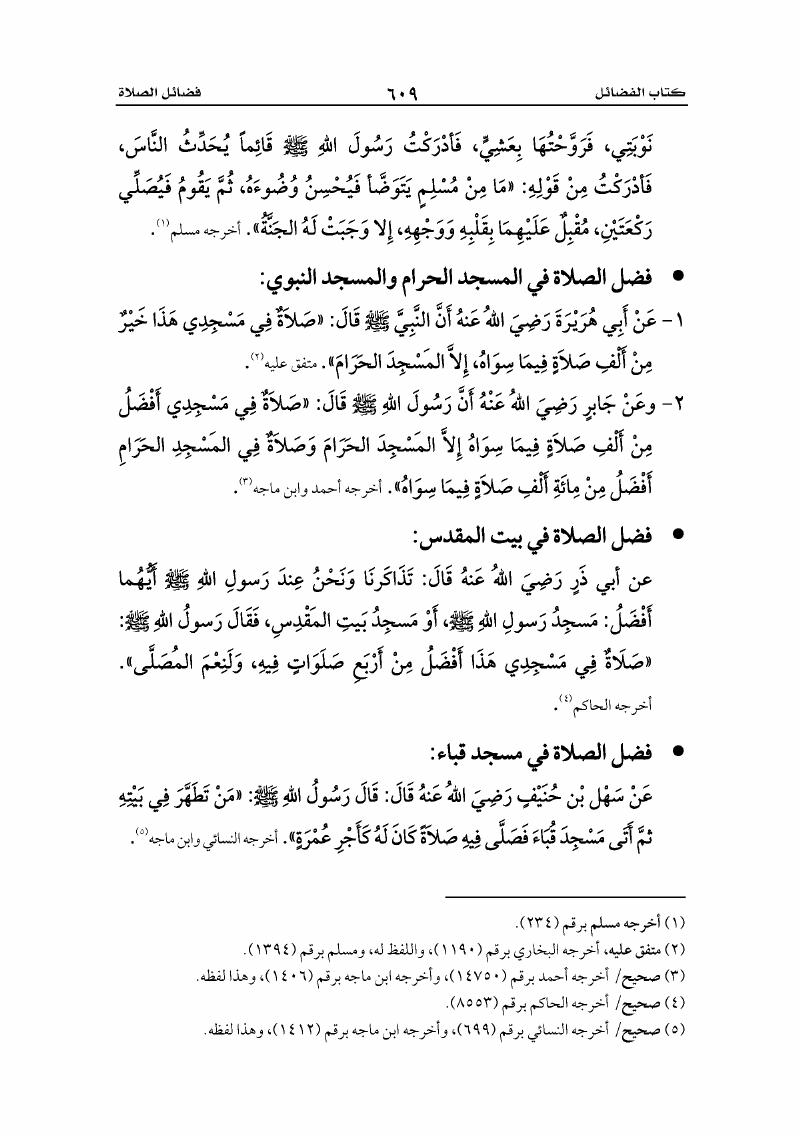 كتاب الفضائل ٦٠٩ فضائل الصلاة
نَوْبَتِي، فَرَوَّحْتُهَا بِعَشِيٍّ، فَأدْرَكْتُ رَسُولَ اللهِ ﷺ قَائِماً يُحَدِّثُ النَّاسَ،
فَأدْرَكْتُ مِنْ قَوْلِهِ: «مَا مِنْ مُسْلِمٍ يَتَوَضَّأ فَيُحْسِنُ وُضُوءَهُ، ثُمَّ يَقُومُ فَيُصَلِّي
رَكْعَتَيْنِ، مُقْبِلٌ عَلَيْهِمَا بِقَلْبِهِ وَوَجْهِهِ، إلا وَجَبَتْ لَهُ الجَنَّةُ». أخرجه مسلم(١).
• فضل الصلاة في المسجد الحرام والمسجد النبوي:
١- عَنْ أبِي هُرَيْرَةَ رَضِيَ اللهُ عَنهُ أنَّ النَّبِيَّ ﷺ قَالَ: «صَلاَةٌ فِي مَسْجِدِي هَذَا خَيْرٌ
مِنْ ألْفِ صَلاَةٍ فِيمَا سِوَاهُ، إلاَّ المَسْجِدَ الحَرَامَ». متفق عليه(٢).
٢- وعَنْ جَابرٍ رَضِيَ اللهُ عَنْهُ أنَّ رَسُولَ اللهِ ﷺ قَالَ: «صَلاَةٌ فِي مَسْجِدِي أفْضَلُ
مِنْ ألْفِ صَلاَةٍ فِيمَا سِوَاهُ إلاَّ المَسْجِدَ الحَرَامَ وَصَلاَةٌ فِي المَسْجِدِ الحَرَامِ
أفْضَلُ مِنْ مِائَةِ ألْفِ صَلاَةٍ فِيمَا سِوَاهُ». أخرجه أحمد وابن ماجه(٣).
• فضل الصلاة في بيت المقدس:
عن أبي ذَرٍ رَضِيَ اللهُ عَنهُ قَالَ: تَذَاكَرنَا وَنَحْنُ عِندَ رَسولِ اللهِ ﷺ أيُّهُما
أفْضَلُ: مَسجِدُ رَسولِ اللهِ ﷺ، أوْ مَسجِدُ بَيتِ المَقْدِسِ، فَقَالَ رَسولُ اللهِ ﷺ:
«صَلَاةٌ فِي مَسْجِدِي هَذَا أفْضَلُ مِنْ أرْبَعِ صَلَوَاتٍ فِيهِ، وَلَنِعْمَ المُصَلَّى».
أخرجه الحاكم(٤).
• فضل الصلاة في مسجد قباء:
عَنْ سَهْل بْن حُنَيْفٍ رَضِيَ اللهُ عَنهُ قَالَ: قَالَ رَسُولُ اللهِ ﷺ: «مَنْ تَطَهَّرَ فِي بَيْتِهِ
ثمَّ أتَى مَسْجِدَ قُبَاءَ فَصَلَّى فِيهِ صَلاَةً كَانَ لَهُ كَأجْرِ عُمْرَةٍ». أخرجه النسائي وابن ماجه(٥).
(١) أخرجه مسلم برقم (٢٣٤).
(٢) متفق عليه، أخرجه البخاري برقم (١١٩٠)، واللفظ له، ومسلم برقم (١٣٩٤).
(٣) صحيح/ أخرجه أحمد برقم (١٤٧٥٠)، وأخرجه ابن ماجه برقم (١٤٠٦)، وهذا لفظه.
(٤) صحيح/ أخرجه الحاكم برقم (٨٥٥٣).
(٥) صحيح/ أخرجه النسائي برقم (٦٩٩)، وأخرجه ابن ماجه برقم (١٤١٢)، وهذا لفظه.